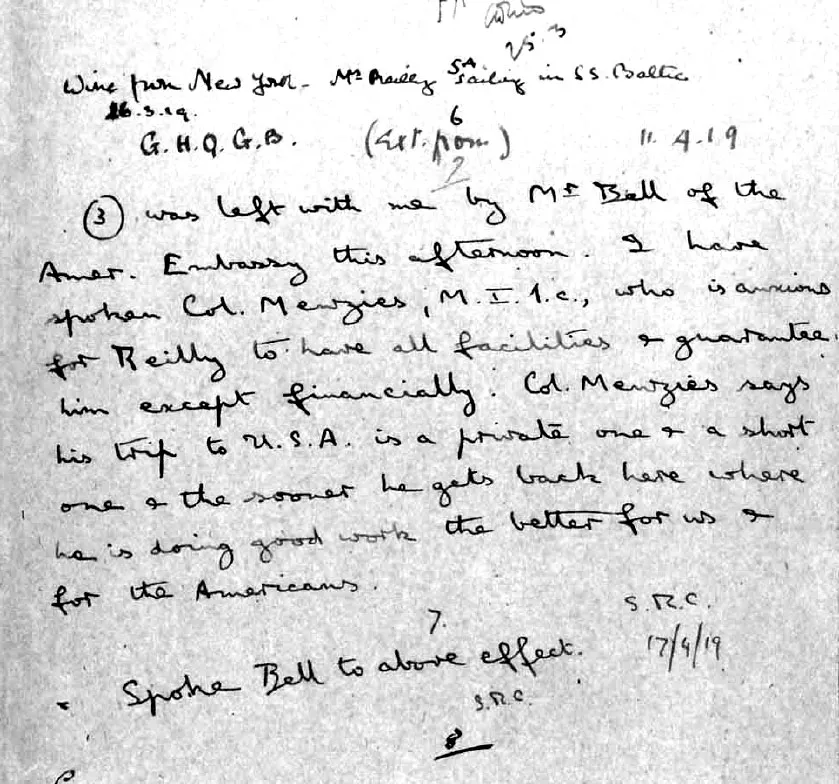 25.3
Wire from New York - Mrs Reilly SA sailing in SS. Baltic
26.3.19.
6
G.H.Q. G.B. (Ext. from) 11.4.19
2
③ was left with me by Mr Bell of the
Amer. Embassy this afternoon. I have
spoken Col. Menzies, M.I.1.c., who is anxious
for Reilly to have all facilities & guarantee
him except financially. Col. Menzies says
his trip to U.S.A. is a private one & a short
one & the sooner he gets back here where
he is doing good work the better for us &
for the Americans.
S.R.C.
17/4/19
7.
Spoke Bell to above effect.
S.R.C.
8